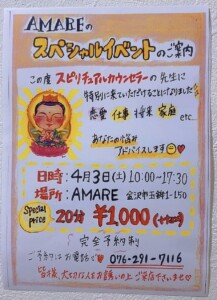 AMAREの
スペシャルイベントのご案内
この度 スピリチュアルカウンセラーの先生に
特別に来ていただけることになりました
恋愛 仕事 将来 家庭
etc...
あなたの悩み
アドバイスします
日時：4月3日(土) 10:00~17:30
場所：AMARE 金沢市玉鉾1-150
Special price
20分 ¥1,000
完全予約制
ご予約はお電話で 076-291-7116
皆様、大切な人もお誘いの上ご来店下さいませ